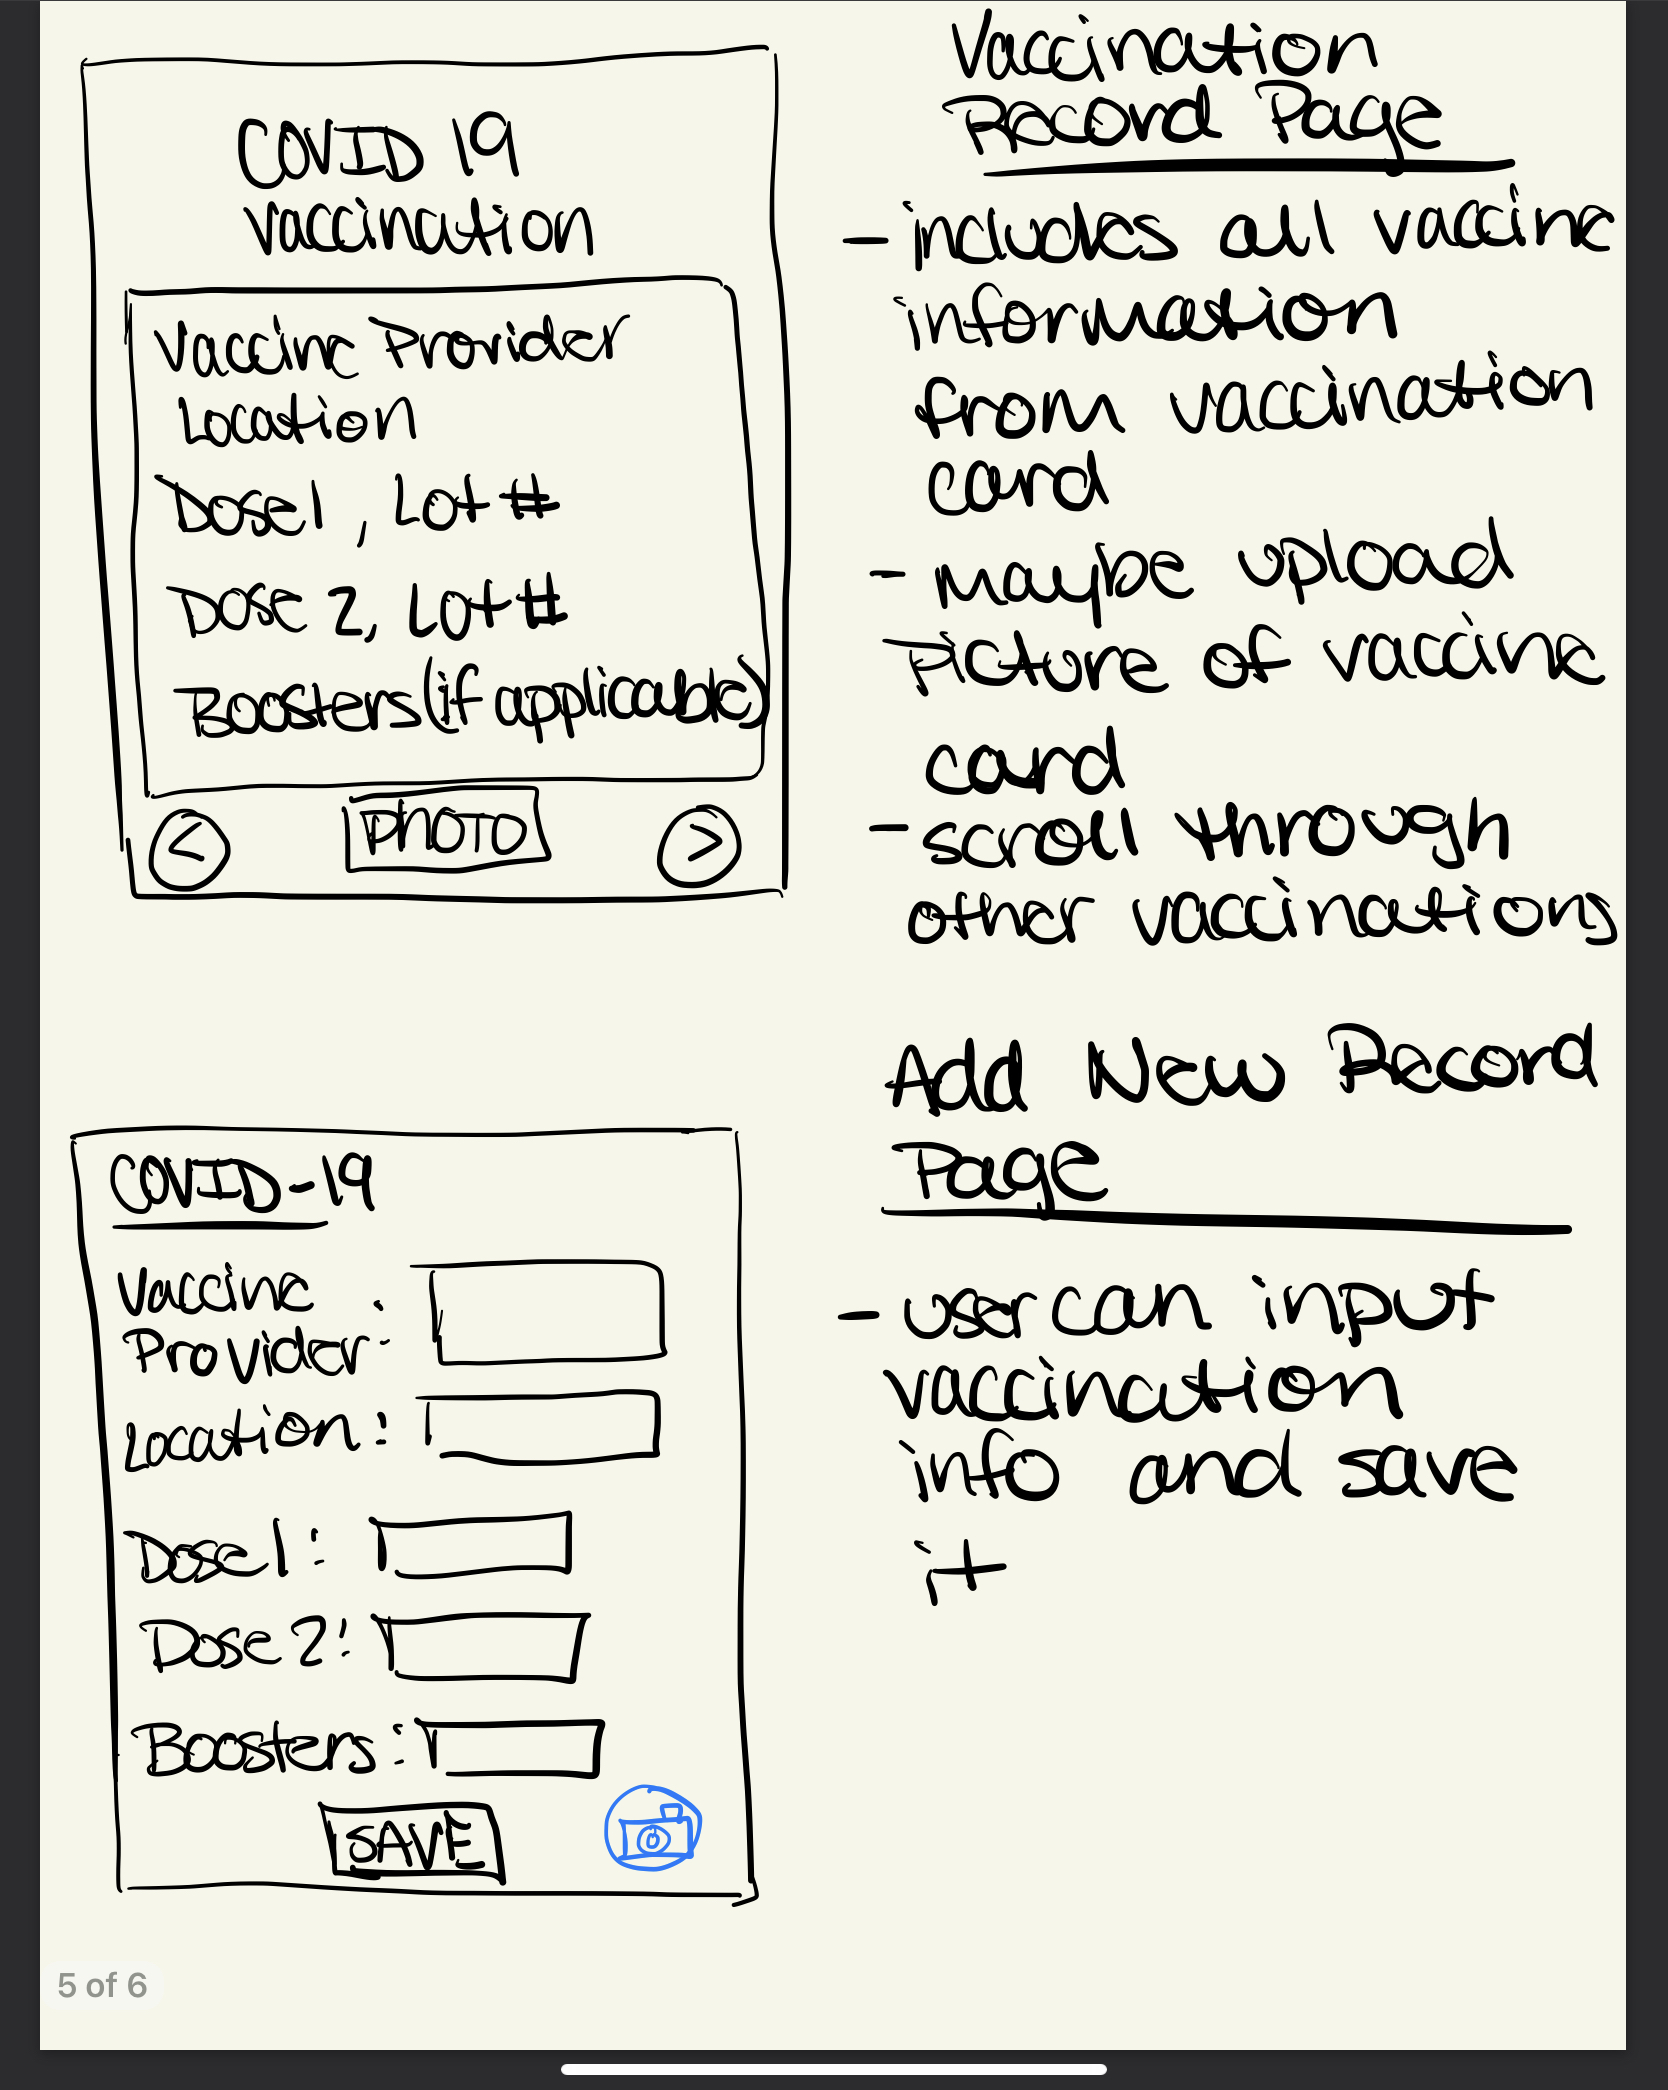 COVID 19
vaccination
Vaccine Provider
Location
Dose 1, Lot #
Dose 2, Lot #
Boosters (if applicable)
<
PHOTO
>
Vaccination
Record Page
- includes all vaccine
information
from vaccination
card
- maybe upload
picture of vaccine
card
- scroll through
other vaccinations
COVID-19
Vaccine
Provider:
Location:
Dose 1:
Dose 2:
Boosters:
SAVE
Add New Record
Page
- user can input
vaccination
info and save
it
5 of 6